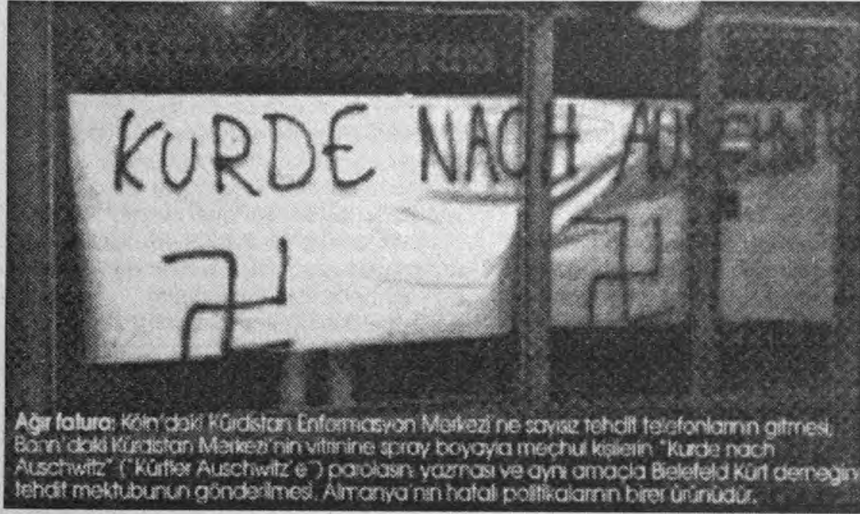 KURDE NACH
Ağır fatura: Köln'daki Kürdistan Enformasyon Merkezi'ne sayısız tehdit telefonlarının gitmesi,
Bonn'daki Kürdistan Merkezi'nin vitrinine spray boyayla meçhul kişilerin "Kurde nach
Auschwitz" ("Kürtler Auschwitz'e") parolasın yazması ve aynı amaçla Bielefeld Kürt derneğin
tehdit mektubunun gönderilmesi, Almanya'nın hatalı politikalarının birer ürünüdür.